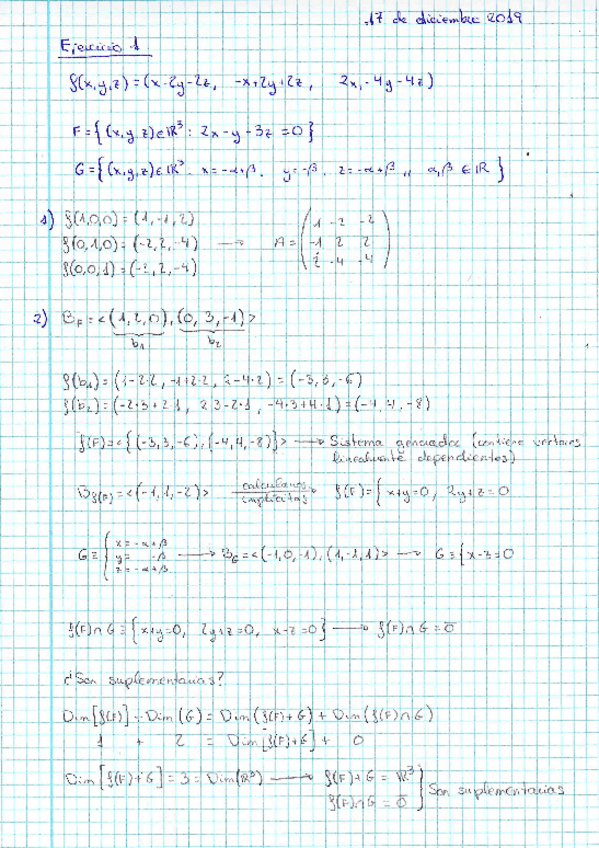 17 de diciembre 2019
Ejercicio 1
f(x,y,z)=(x-2y-2z, -x+2y+2z, 2x,-4y-4z)
F={(x,y,z)∈ℝ³: 2x-y-3z=0}
G={(x,y,z)∈ℝ³. x=-α+β. y=-β. z=-α+β ,, α,β∈ℝ}
1) f(1,0,0)=(1,-1,2)
f(0,1,0)=(-2,2,-4) → A=(1 -2 -2
-1 2 2
2 -4 -4)
f(0,0,1)=(-2,2,-4)
2) B_F=<(1,2,0),(0,3,-1)>
b₁ b₂
f(b₁)=(1-2·2, -1+2·2, 2-4·2)=(-3,3,-6)
f(b₂)=(-2·3+2·1, 2·3-2·1, -4·3+4·1)=(-4,4,-8)
f(F)=<{(-3,3,-6),(-4,4,-8)}> → Sistema generador (contiene vectores
linealmente dependientes)
B_f(F)=<(-1,1,-2)> calculamos implícitas → f(F)={x+y=0, 2y+z=0
G≡{x=-α+β
y= -β → B_G=<(-1,0,-1),(1,-1,1)> → G≡{x-z=0
z=-α+β
f(F)∩G≡{x+y=0, 2y+z=0, x-z=0} → f(F)∩G=0̄
¿Son suplementarias?
Dim[f(F)]+Dim(G)=Dim(f(F)+G)+Dim(f(F)∩G)
1 + 2 = Dim[f(F)+G]+ 0
Dim[f(F)+G]=3=Dim(ℝ³) → f(F)+G=ℝ³
f(F)∩G=0̄ } Son suplementarias